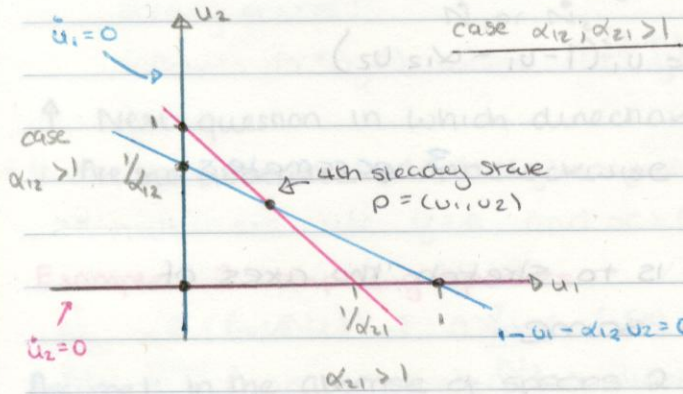 u₂
u̇₁=0
case α₁₂; α₂₁ >1
1
case
α₁₂ >1
1/α₁₂
4th steady state
p = (u₁, u₂)
u₁
1/α₂₁
1
1-u₁-α₁₂u₂=0
u̇₂=0
α₂₁ >1